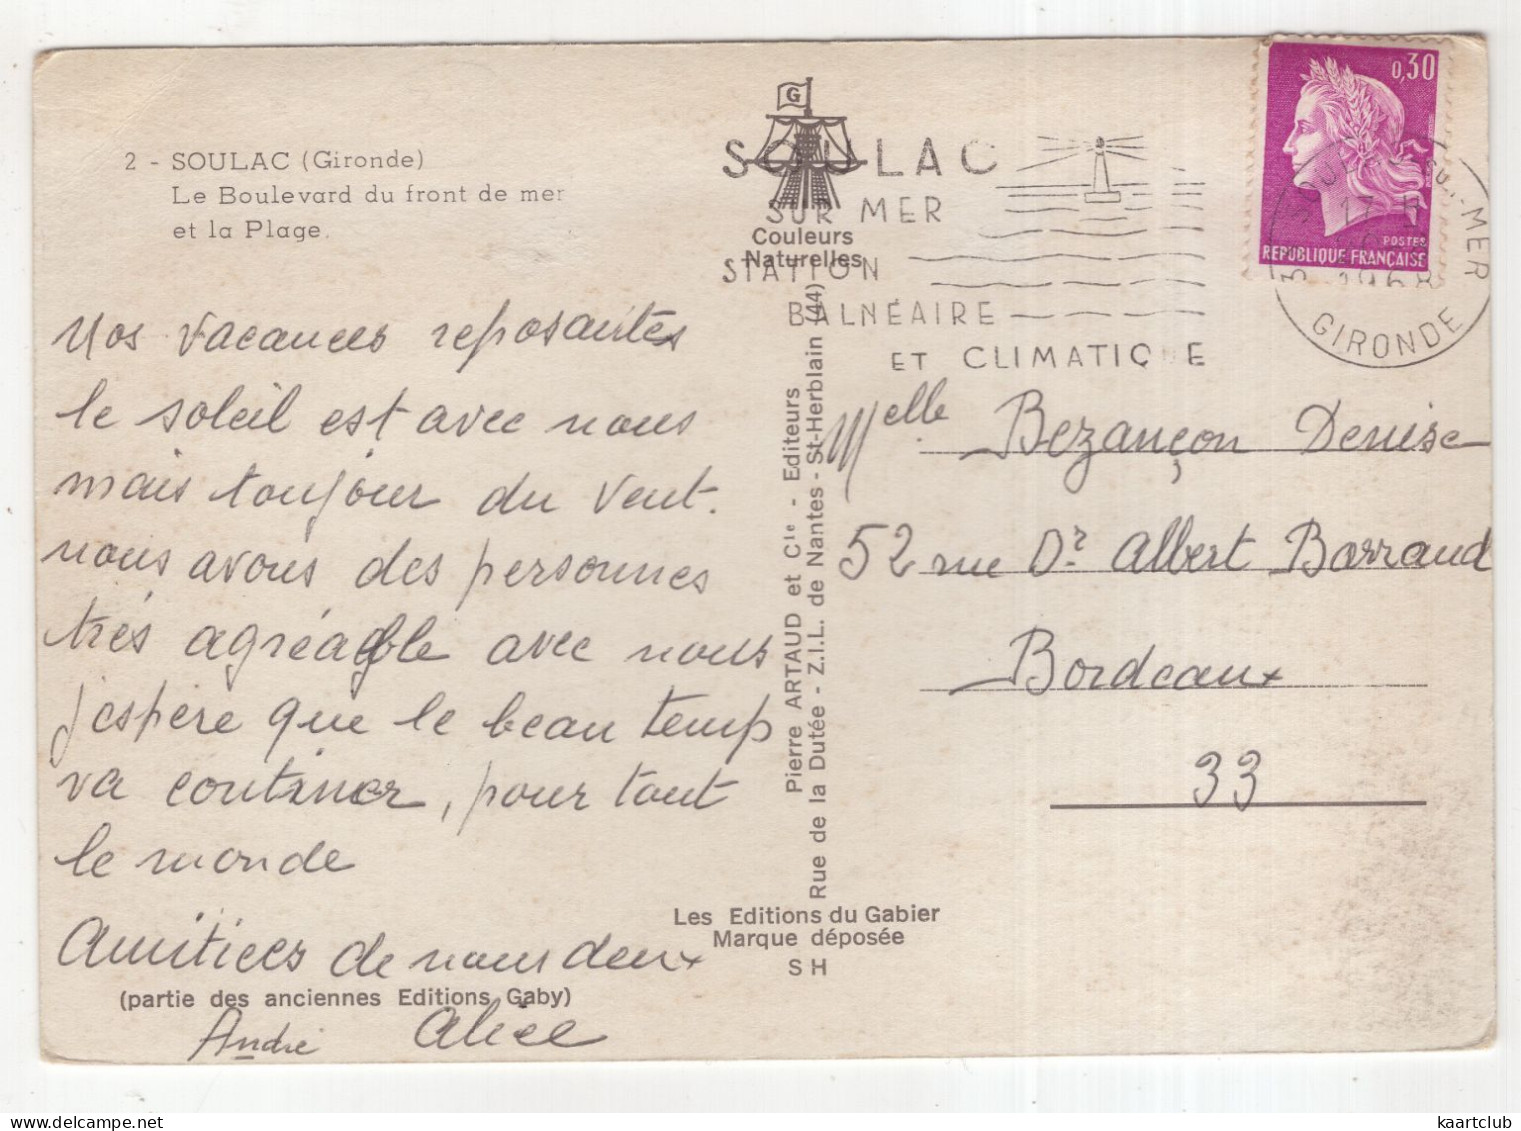 2 - SOULAC (Gironde)
Le Boulevard du front de mer
et la Plage.
Nos vacances reposantes
le soleil est avec nous
mais toujour du vent.
nous avons des personnes
très agréagble avec nous
j'espère que le beau temp
va continer, pour tout
le monde
Amitiees de nous deux
(partie des anciennes Editions Gaby)
André Alice
G
Couleurs
Naturelles
SOULAC
SUR MER
STATION
BALNÉAIRE
ET CLIMATIQUE
Pierre ARTAUD et Cie - Editeurs
Rue de la Dutée - Z.I.L. de Nantes - St-Herblain (44)
Les Editions du Gabier
Marque déposée
SH
0,30
POSTES
REPUBLIQUE FRANÇAISE
17 H
1968
MER
GIRONDE
Melle Bezançon Denise
52 rue Dr Albert Barraud
Bordeaux
33
kaartclub